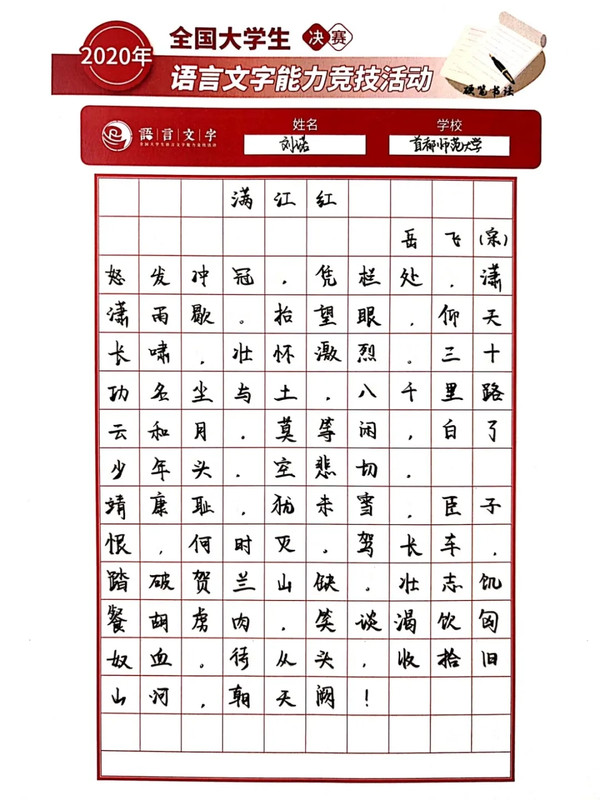 2020年
全国大学生 决赛
语言文字能力竞技活动
硬笔书法
語言文字
姓名 学校
刘诺 首都师范大学
满江红
岳飞(宋)
怒发冲冠，凭栏处，潇
潇雨歇。抬望眼，仰天
长啸，壮怀激烈。三十
功名尘与土，八千里路
云和月，莫等闲，白了
少年头，空悲切。
靖康耻，犹未雪，臣子
恨，何时灭。驾长车，
踏破贺兰山缺。壮志饥
餐胡虏肉，笑谈渴饮匈
奴血。待从头，收拾旧
山河，朝天阙！